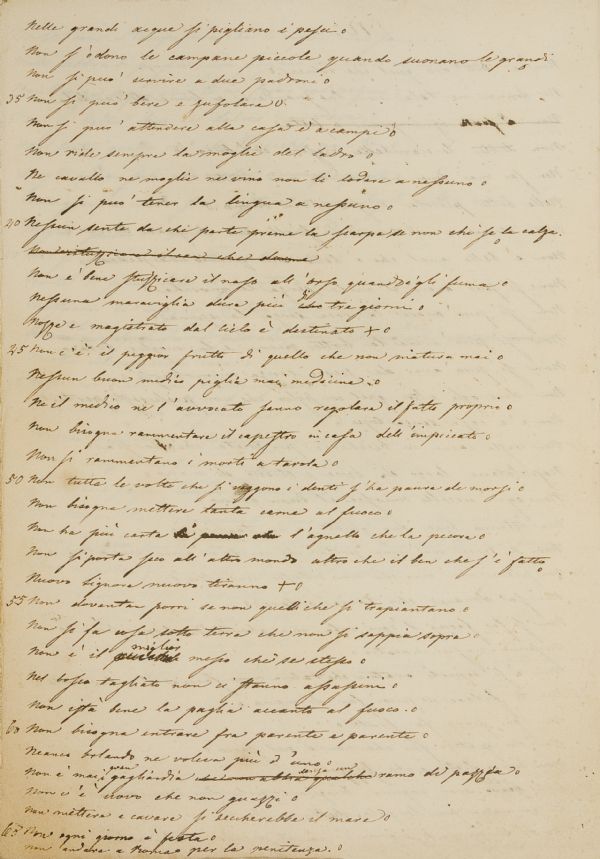 Nelle grandi acque si pigliano i pesci o
Non s'odono le campane piccole quando suonano le grandi
Non si può servire a due padroni o
35 Non si può bere e zufolare o
Non si può attendere alla casa e a campi o
Non ride sempre la moglie del ladro o
Ne cavallo ne moglie ne vino non li lodare a nessuno o
Non si può tener la lingua a nessuno o
40 Nessun sente da che parte prème la scarpa se non chi se la calza. o
il can che dorme
Non è bene stuzzicare il naso all'orso quand'egli fuma o
Nessuna maraviglia dura più che tre giorni o
Nozze e magistrato dal cielo è destinato + o
45 Non c'è il peggior frutto di quello che non matura mai o
Nessun buon medico piglia mai medicine. o
Ne il medico ne l'avvocato sanno regolare il fatto proprio o
Non bisogna rammentare il capestro in casa dell'impiccato o
Non si rammentano i morti a tavola o
50 Non tutte le volte che si veggono i denti s'ha paura de morsi o
Non bisogna mettere tanta carne al fuoco o
Non ha più carta l'agnello che la pecora o
Non si porta seco all'altro mondo altro che il ben che s'è fatto o
Nuovo signore nuovo tiranno + o
55 Non doventan porri se non quelli che si trapiantano o
Non si fa cosa sotto terra che non si sappia sopra o
Non è il miglior messo che se stesso o
Nel bosco tagliato non ci stanno assassini o
Non istà bene la paglia accanto al fuoco. o
60 Non bisogna entrare fra parente e parente o
Neanco Orlando ne voleva più d'uno o
Non è mai gran gagliardia senza un ramo di pazzia o
Non c'è uovo che non guazzi o
Non mettere e cavare si seccherebbe il mare o
65 Non ogni giorno è festa o
Non andare a Roma per la penitenza. o